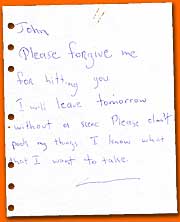 John
Please forgive me
for hitting you
I will leave tomorrow
without a scene Please don't
pack my things I know what
that I want to take.